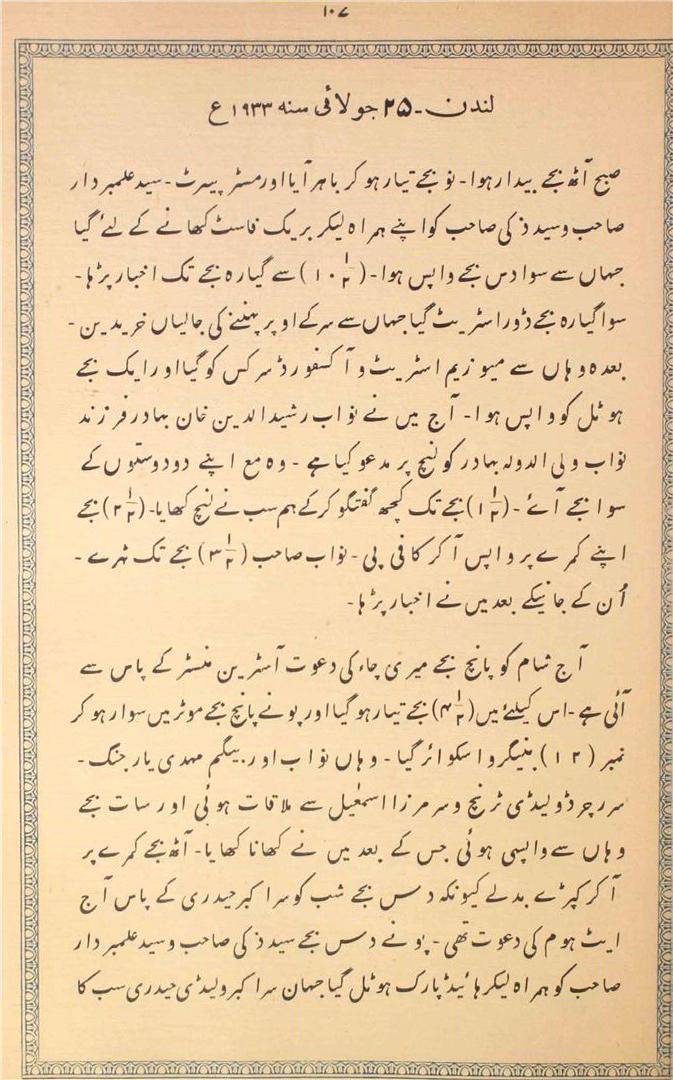 ۱۰۷
لندن۔ ۲۵ جولائی سنہ ۱۹۳۳ ع
صبح آٹھ بجے بیدار ہوا۔ نو بجے تیار ہو کر باہر آیا اور مسٹر پیرٹ۔ سید علمبردار
صاحب و سید ذکی صاحب کو اپنے ہمراہ لیکر بریک فاسٹ کھانے کے لئے گیا
جہاں سے سوا دس بجے واپس ہوا۔ (۱۰ ۱/۲) سے گیارہ بجے تک اخبار پڑھا۔
سوا گیارہ بجے ڈوراسٹریٹ گیا جہاں سے سر کے اوپر پہننے کی جالیاں خریدین۔
بعدہ وہاں سے میوزیم اسٹریٹ و آکسفورڈ سرکس کو گیا اور ایک بجے
ہوٹل کو واپس ہوا۔ آج میں نے نواب رشید الدین خان بہادر فرزند
نواب ولی الدولہ بہادر کو لنچ پر مدعو کیا ہے۔ وہ مع اپنے دو دوستوں کے
سوا بجے آئے۔ (۱ ۱/۲) بجے تک کچھ گفتگو کر کے ہم سب نے لنچ کھایا۔ (۲ ۱/۲) بجے
اپنے کمرے پر واپس آ کر کافی پی۔ نواب صاحب (۳ ۱/۲) بجے تک ٹہرے۔
اُن کے جانیکے بعد میں نے اخبار پڑھا۔
آج شام کو پانچ بجے میری چاء کی دعوت آسٹرین منسٹر کے پاس سے
آئی ہے۔ اس کیلئے میں (۴ ۱/۲) بجے تیار ہو گیا اور پونے پانچ بجے موٹر میں سوار ہو کر
نمبر (۱۲) بلیگرو اسکوائر گیا۔ وہاں نواب اور بیگم مہدی یار جنگ۔
سر رچرڈ ولیڈی ٹرنچ و سر مرزا اسمٰعیل سے ملاقات ہوئی اور سات بجے
وہاں سے واپسی ہوئی جس کے بعد میں نے کھانا کھایا۔ آٹھ بجے کمرے پر
آ کر کپڑے بدلے کیونکہ دس بجے شب کو سر اکبر حیدری کے پاس آج
ایٹ ہوم کی دعوت تھی۔ پونے دس بجے سید ذکی صاحب و سید علمبردار
صاحب کو ہمراہ لیکر ہائیڈ پارک ہوٹل گیا جہان سر اکبر ولیڈی حیدری سب کا